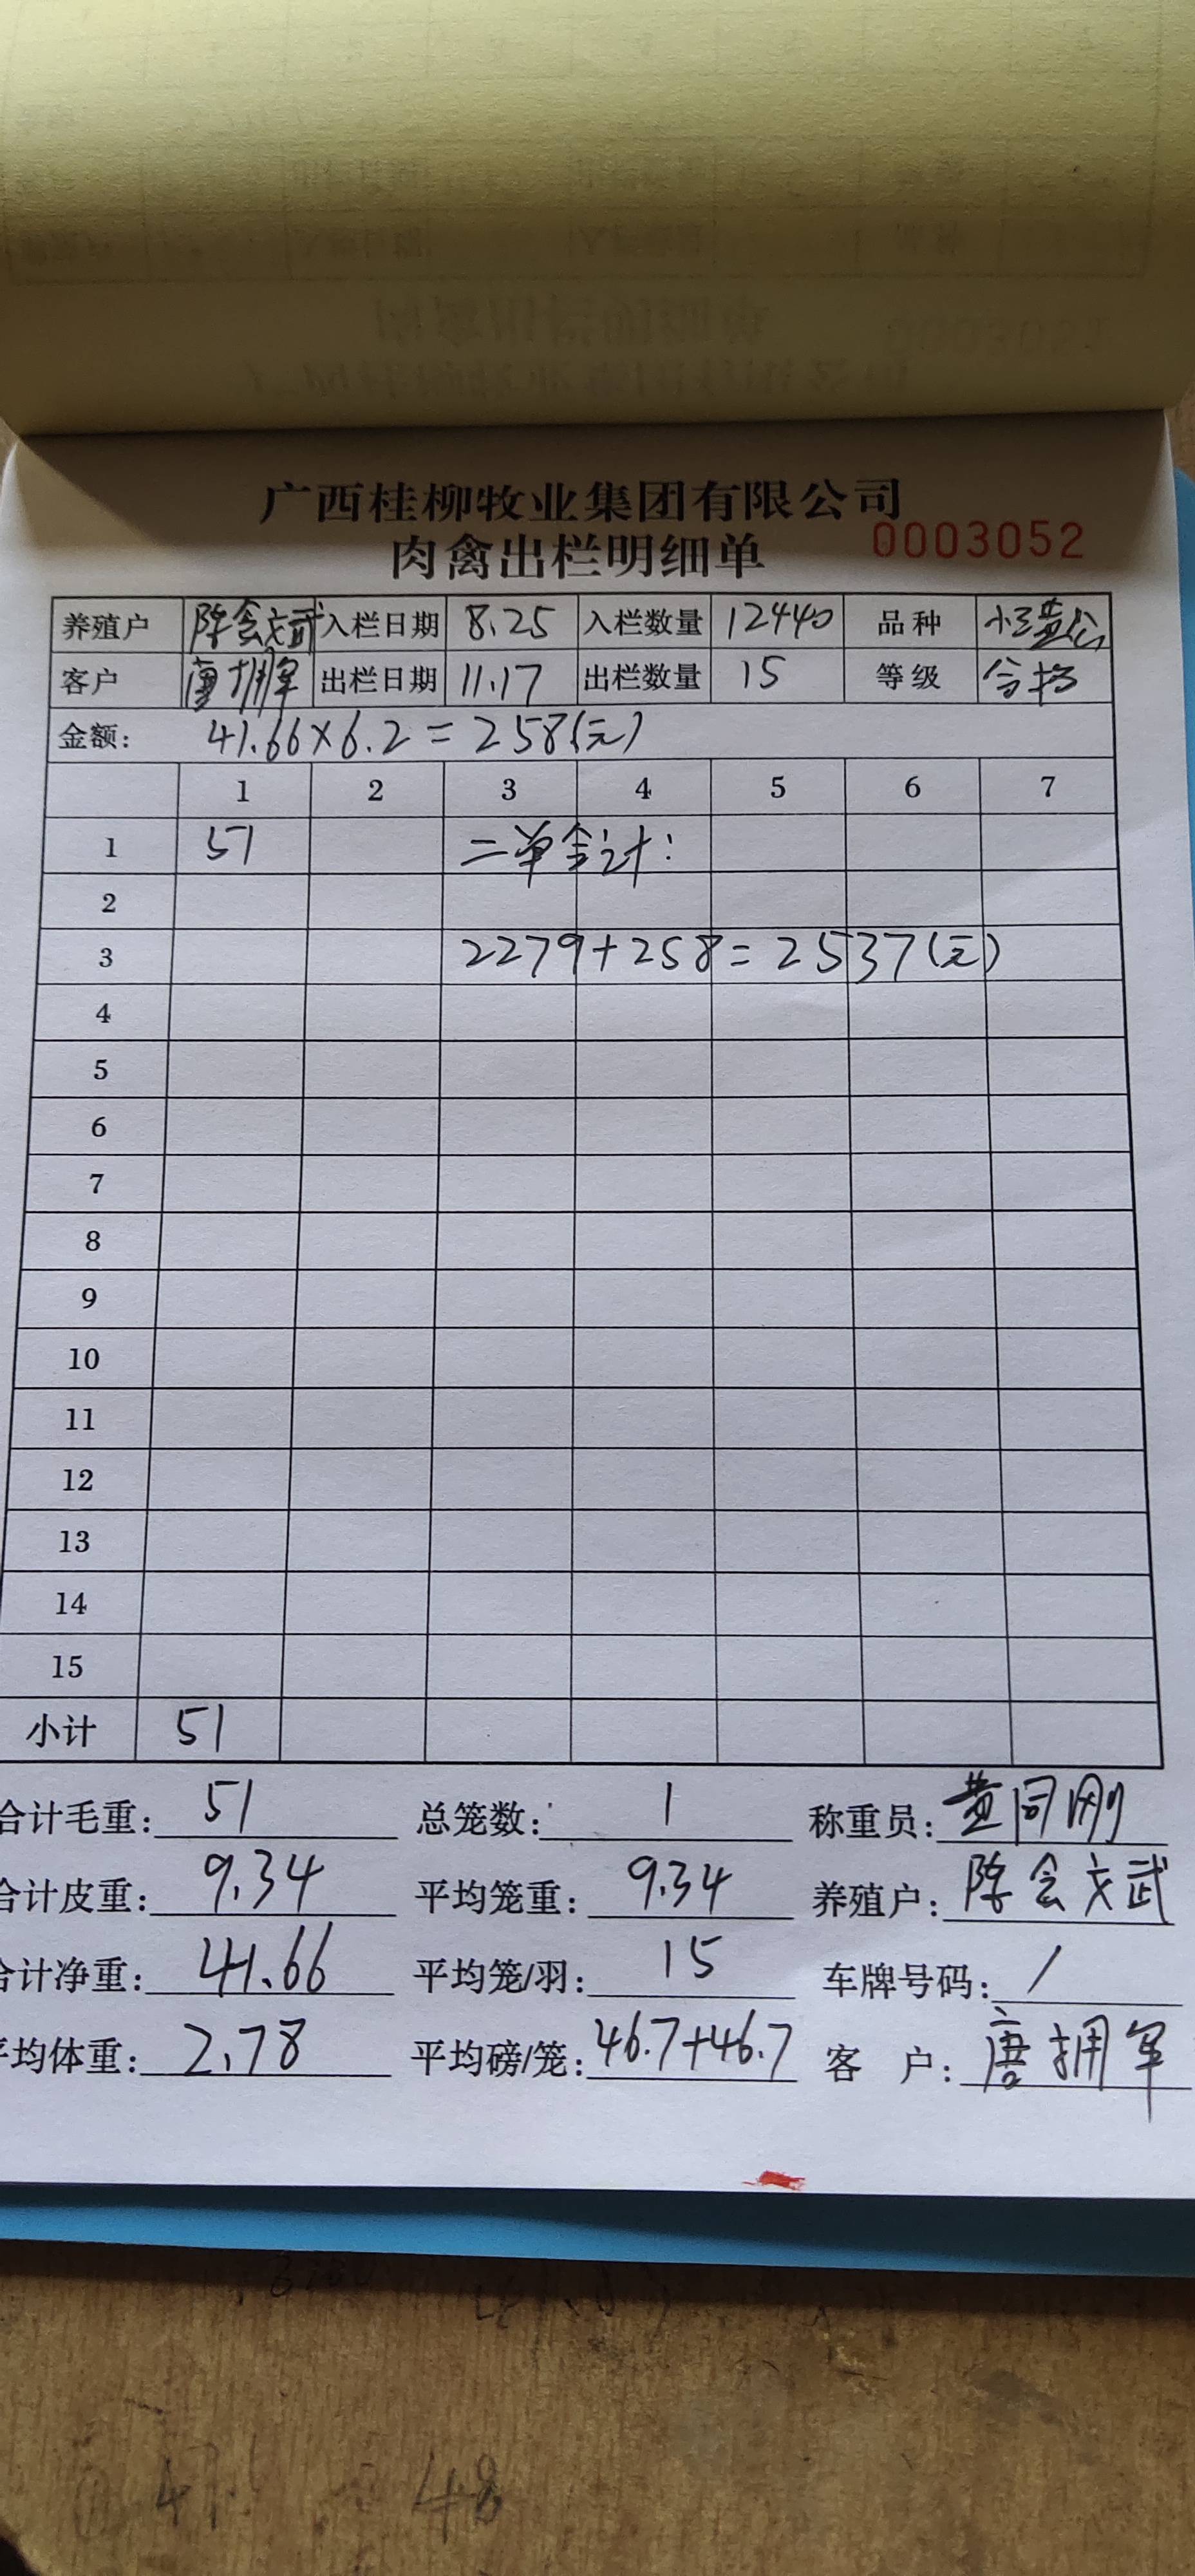 广西桂柳牧业集团有限公司
肉禽出栏明细单 0003052
养殖户 陈会文武 入栏日期 8.25 入栏数量 12440 品种
客户 唐拥军 出栏日期 11.17 出栏数量 15 等级 合格
金额: 41.66×6.2=258(元)
1 2 3 4 5 6 7
1 51 二单合计:
2
3 2279+258=2537(元)
4
5
6
7
8
9
10
11
12
13
14
15
小计 51
合计毛重: 51 总笼数: 1 称重员: 黄同刚
合计皮重: 9.34 平均笼重: 9.34 养殖户: 陈会文武
合计净重: 41.66 平均笼/羽: 15 车牌号码: /
平均体重: 2.78 平均磅/笼: 46.7+46.7 客户: 唐拥军
48